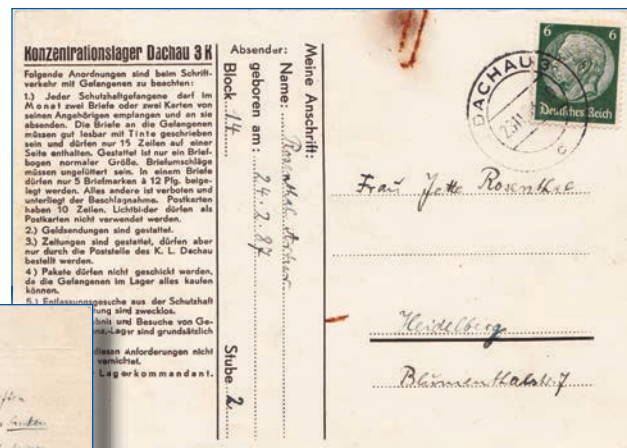 Konzentrationslager Dachau 3 K
Folgende Anordnungen sind beim Schrift-
verkehr mit Gefangenen zu beachten:
1.) Jeder Schutzhaftgefangene darf im
Monat zwei Briefe oder zwei Karten von
seinen Angehörigen empfangen und an sie
absenden. Die Briefe an die Gefangenen
müssen gut lesbar mit Tinte geschrieben
sein und dürfen nur 15 Zeilen auf einer
Seite enthalten. Gestattet ist nur ein Brief-
bogen normaler Größe. Briefumschläge
müssen ungefüttert sein. In einem Briefe
dürfen nur 5 Briefmarken à 12 Pfg. beige-
legt werden. Alles andere ist verboten und
unterliegt der Beschlagnahme. Postkarten
haben 10 Zeilen. Lichtbilder dürfen als
Postkarten nicht verwendet werden.
2.) Geldsendungen sind gestattet.
3.) Zeitungen sind gestattet, dürfen aber
nur durch die Poststelle des K. L. Dachau
bestellt werden.
4.) Pakete dürfen nicht geschickt werden,
da die Gefangenen im Lager alles kaufen
können.
5.) Entlassungsgesuche aus der Schutzhaft
sind zwecklos.
und Besuche von Ge-
-Lager sind grundsätzlich
diesen Anforderungen nicht
vernichtet.
Lagerkommandant.
Meine Anschrift:
Absender:
Name: Rosenthal Artur
geboren am: 24.2.87
Block 14 Stube 2
6 6
Deutsches Reich
DACHAU 3
Frau Jette Rosenthal
Heidelberg
Blumenthalstr. 7